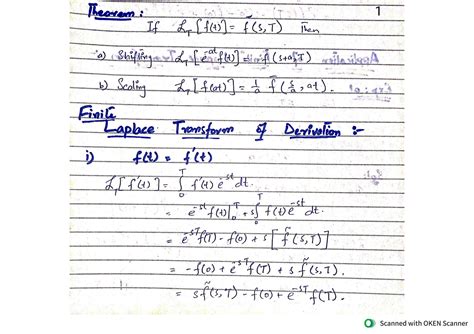 1
Theorem :
If 𝓛_T [f(t)] = f̄(s,T) Then
a) Shifting 𝓛_T [e^{-at} f(t)] = f̄(s+a,T)
b) Scaling 𝓛_T [f(at)] = 1/a f̄(s/a, at).
Finite
Laplace Transform of Derivation :-
i) f(t) = f'(t)
𝓛_T [f'(t)] = ∫_0^T f'(t) e^{-st} dt.
= e^{-st} f(t)|_0^T + s∫_0^T f(t) e^{-st} dt.
= e^{-sT} f(T) - f(0) + s [f̄(s,T)]
= -f(0) + e^{-sT} f(T) + s f̄(s,T).
= s f̄(s,T) - f(0) + e^{-sT} f(T).
Scanned with OKEN Scanner